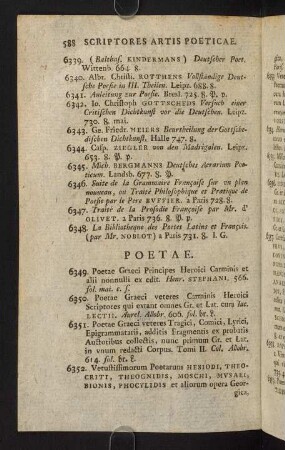 588 SCRIPTORES ARTIS POETICAE.
6339. (Balthas. KINDERMANS) Deutscher Poet.
Wittenb. 664. 8.
6340. Albr. Christi. ROTTHENS Vollständige Deut-
sche Poesie in III. Theilen. Leipz. 688. 8.
6341. Anleitung zur Poesie. Bresl. 725. 8. P. p.
6342. Io. Christoph GOTTSCHEDS Versuch einer
Critischen Dichtkunst vor die Deutschen. Leipz.
730. 8. mai.
6343. Ge. Friedr. MEIERS Beurtheilung der Gottsche-
dischen Dichtkunst. Halle 747. 8.
6344. Casp. ZIEGLER von den Madrigalen. Leipz.
653. 8. P. p.
6345. Mich. BERGMANNS Deutsches Aerarium Poe-
ticum. Landsb. 677. 8. P.
6346. Suite de la Grammaire Françoise sur un plan
nouveau, ou Traité Philosophique et Pratique de
Poesie par le Pere BUFFIER. a Paris 728. 8.
6347. Traité de la Prosodie Françoise par Mr. d'
OLIVET. a Paris 736. 8. P. p.
6348. La Bibliotheque des Poetes Latins et François.
(par Mr. NOBLOT) a Paris 731. 8. I. G.
POETAE.
6349. Poetae Graeci Principes Heroici Carminis et
alii nonnulli ex edit. Henr. STEPHANI. 566.
fol. mai. c. f.
6350. Poetae Graeci veteres Carminis Heroici
Scriptores qui extant omnes Gr. et Lat. cura Iac.
LECTII. Aurel. Allobr. 606. fol. br. ?.
6351. Poetae Graeci veteres Tragici, Comici, Lyrici,
Epigrammatarii, additis Fragmentis ex probatis
Auctoribus collectis, nunc primum Gr. et Lat.
in unum redacti Corpus. Tomi II. Col. Allobr.
614. fol. br. ?.
6352. Vetustissimorum Poetarum HESIODI, THEO-
CRITI, THEOGNIDIS, MOSCHI, MVSAEI,
BIONIS, PHOCYLIDIS et aliorum opera Geor-
gica,